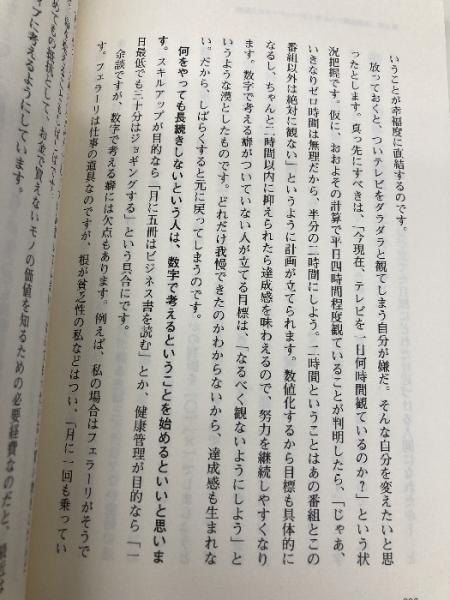 いうことが幸福度に直結するのです。
放っておくと、ついテレビをダラダラと観てしまう自分が嫌だ。そんな自分を変えたいと思
ったとします。真っ先にすべきは、「今現在、テレビを一日何時間観ているのか?」という状
況把握です。仮に、おおよその計算で平日四時間程度観ていることが判明したら、「じゃあ、
いきなりゼロ時間は無理だから、半分の二時間にしよう。二時間ということはあの番組とこの
番組以外は絶対に観ない」というように計画が立てられます。数値化するから目標も具体的に
なるし、ちゃんと二時間以内に抑えられたら達成感を味わえるので、努力を継続しやすくなり
ます。数字で考える癖がついていない人が立てる目標は、「なるべく観ないようにしよう」と
いうような漠としたものです。どれだけ我慢できたのかわからないから、達成感も生まれな
い。だから、しばらくすると元に戻ってしまうのです。
何をやっても長続きしないという人は、数字で考えるということを始めるといいと思いま
す。スキルアップが目的なら「月に五冊はビジネス書を読む」とか、健康管理が目的なら「一
日最低でも三十分はジョギングする」という具合にです。
余談ですが、数字で考える癖には欠点もあります。例えば、私の場合はフェラーリがそうで
す。フェラーリは仕事の道具なのですが、根が貧乏性の私などはつい、「月に一回も乗ってい
めての抵抗として、お金で買えないモノの価値を知るための必要経費なのだと、
に考えるようにしています。